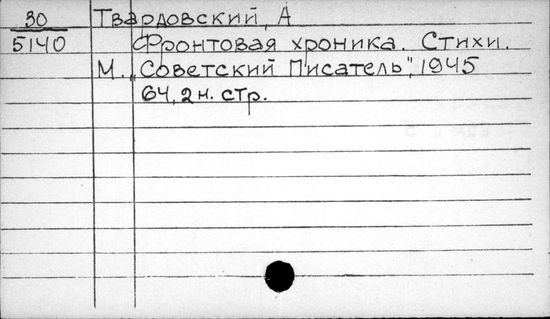 30 Твардовский, А
5140 Фронтовая хроника. Стихи.
М. „Советский Писатель", 1945
64, 2 н. стр.